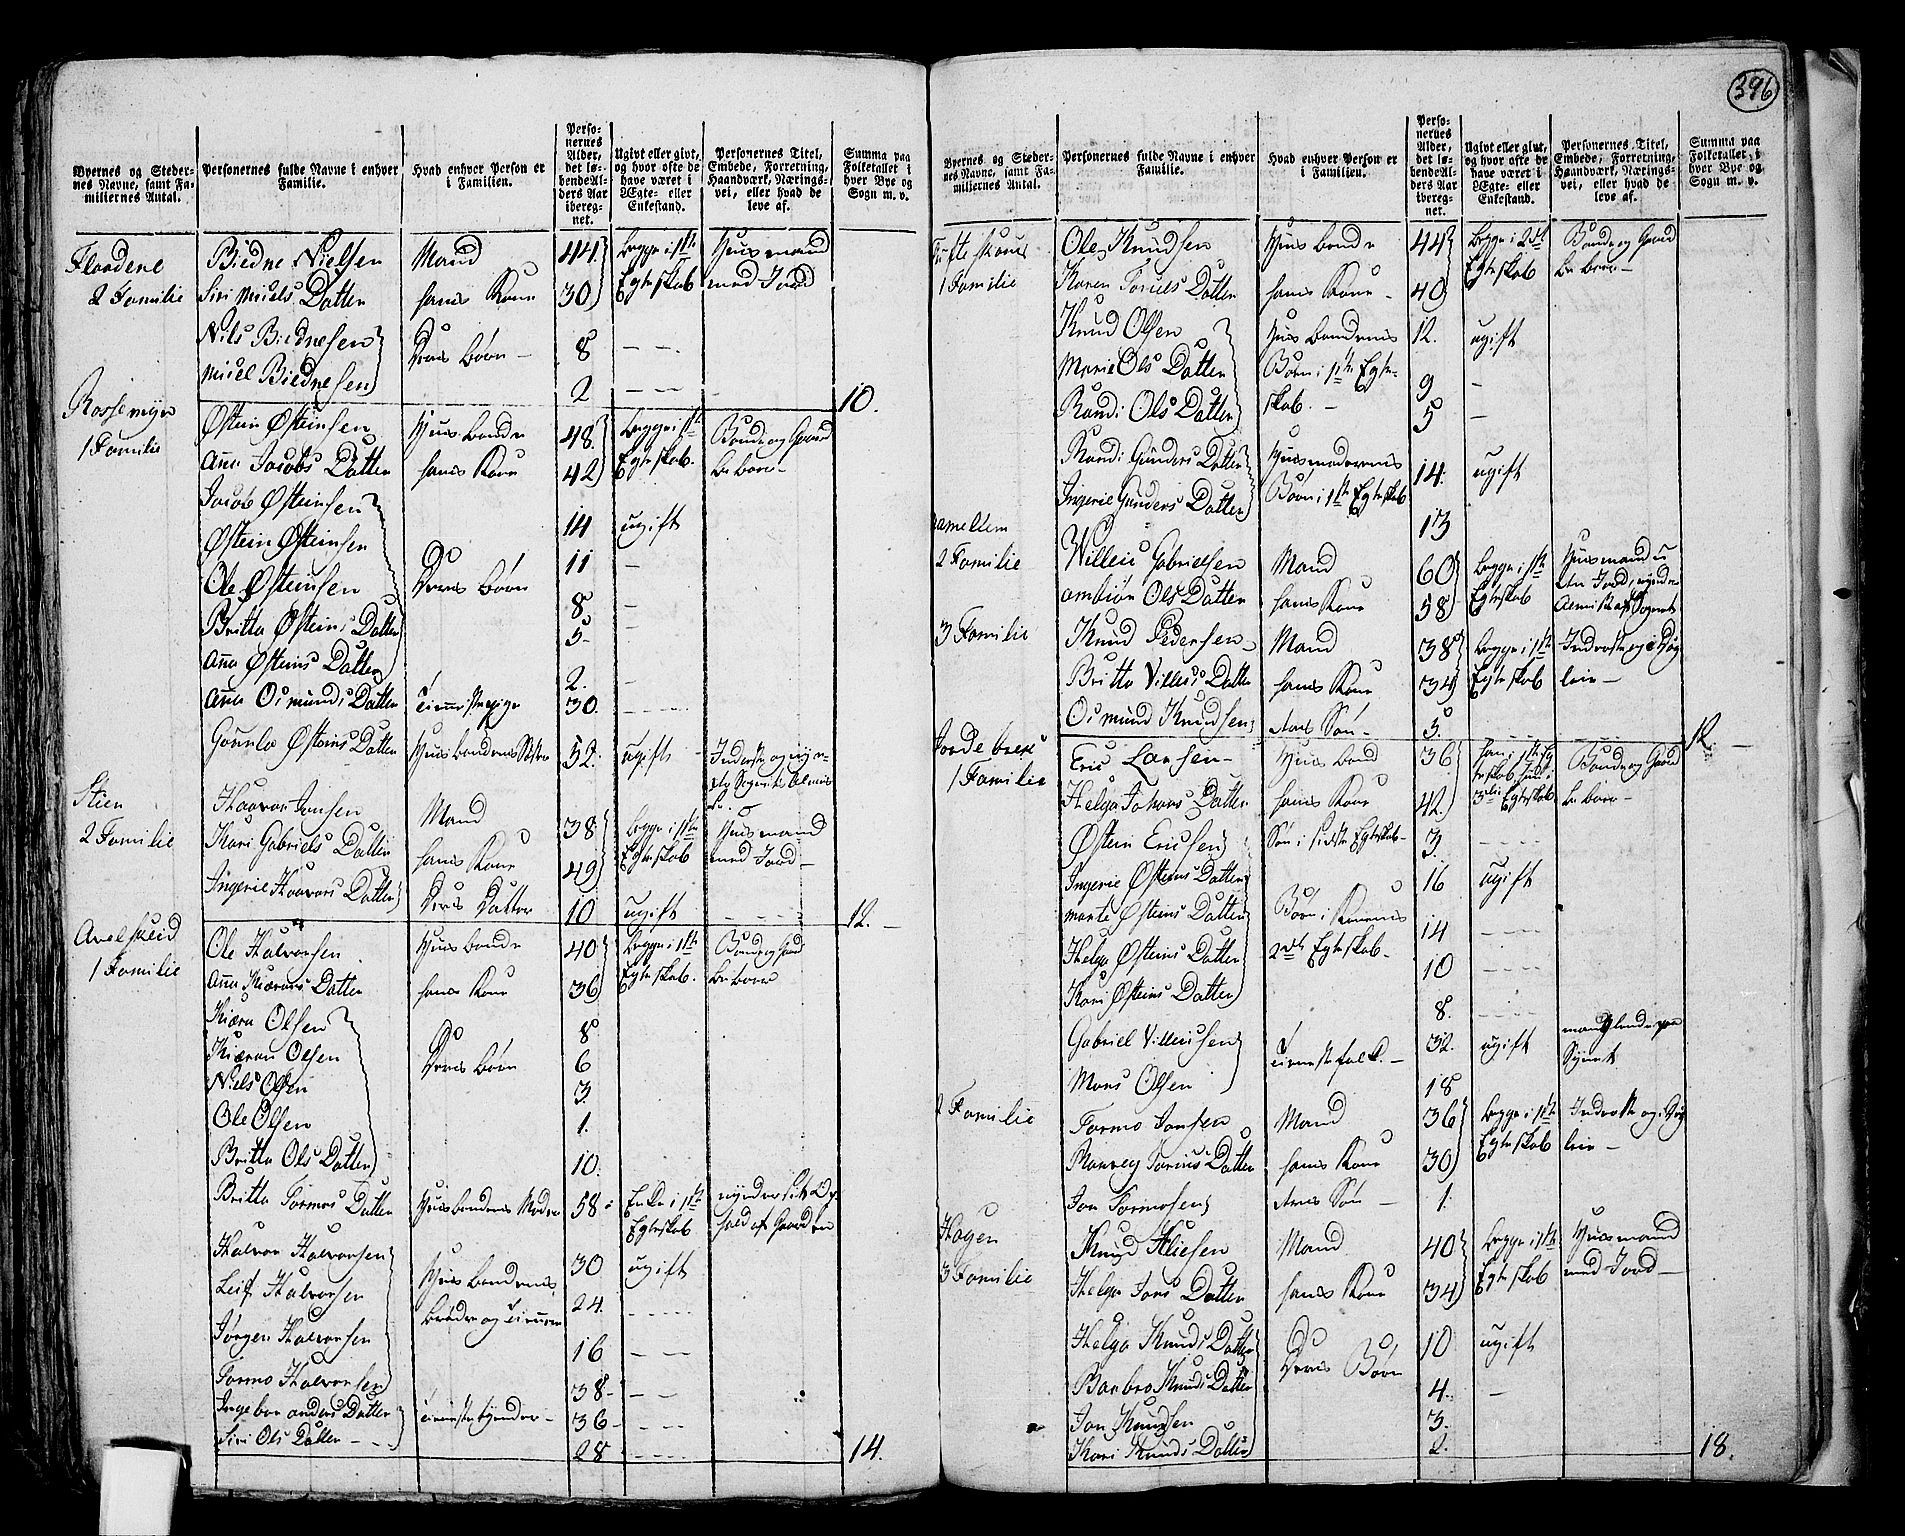 396
Byernes og Steder-
nes Navne, samt Fa-
miliernes Antal.
Personernes fulde Navne i enhver
Familie.
Hvad enhver Person er
i Familien.
Perso-
nernes
Alder,
det lø-
bende Al-
ders Aar
iberegnet.
Ugivt eller givt,
og hvor ofte de
have været i
Ægte- eller
Enkestand.
Personernes Titel,
Embede, Forretning,
Haandværk, Nærings-
vei, eller hvad de
leve af.
Summa paa
Folketallet i
hver Bye og
Sogn m. v.
2 Familie
Biedne Nielsen Mand 44 begge i 1ste Huusmand
Siri Miels Datter hans Kone 30 Egteskab med Jord
Nils Biednesen Deres børn 8
Miel Biednesen 2
10.
Rossemyr
1 Familie
Østein Østeinsen Huusbonde 48 begge i 1ste Bonde og Gaard
Anna Jacobs Datter hans Kone 42 Egteskab. beboer
Jacob Østeinsen 14 ugift
Østein Østeinsen 11
Ole Østeinsen Deres børn 8
Britta Østeins Datter 5
Anna Østeins Datter 2.
Anna Osmunds Datter Tienestepige 30.
Gounla Østeins Datter Huusbondens Søster 52. ugift
Stien
2 Familie
Haavor Jonsen Mand 38 begge i 1ste Huusmand
Kari Gabriels Datter hans Kone 49 Egteskab med Jord
Ingerie Haavors Datter Deres Datter 10 ugift
12.
1 Familie
Ole Halvorsen Huusbonde 40 begge i 1ste Bonde og Gaard
Anna Kiærans Datter hans Kone 36 Egteskab. beboer
Olsen 8
Kiæran Olsen Deres børn 6
Niels Olsen 3.
Ole Olsen 1.
Britta Ols Datter 10.
Britta Tormos Datter Huusbondens Moder 58 Enke i 1ste
Egteskab
Halvor Halvorsen Huusbondens 30 ugift
Leif Halvorsen 24.
Jørgen Halvorsen 16
Tormo Halvorsen 38
Ingebor Anders Datter 36
Siri Ols Datter 28
14.
Byernes og Steder-
nes Navne, samt Fa-
miliernes Antal.
Personernes fulde Navne i enhver
Familie.
Hvad enhver Person er
i Familien.
Perso-
nernes
Alder,
det lø-
bende Al-
ders Aar
iberegnet.
Ugivt eller givt,
og hvor ofte de
have været i
Ægte- eller
Enkestand.
Personernes Titel,
Embede, Forretning,
Haandværk, Nærings-
vei, eller hvad de
leve af.
Summa paa
Folketallet i
hver Bye og
Sogn m. v.
1 Familie
Ole Knudsen Huusbonde 44 begge i 2det Bonde og Gaard
Karen Datter hans Kone 40 Egteskab beboer
Knud Olsen Huusbondens 12. ugift
Marie Ols Datter Børn i 1ste Egte- 9
Randi Ols Datter skab. 5
Randi Gunders Datter Huusmoderens 14. ugift
Ingerie Gunders Datter Børn i 1ste Egteskab 13
2 Familie
Willeis Gabrielsen Mand 60 begge i 1ste Huusmand
Ambiør Ols Datter hans Kone 58 Egteskab
3 Familie
Knud Pedersen Mand 38 begge i 1ste
Britta Villeis Datter hans Kone 34 Egteskab
Osmund Knudsen 3.
12
1 Familie
Eric Larsen Huusbond 36 Bonde og Gaard
Helga Datter hans Kone 42. 3die Egteskab beboer
Østein Ericsen Søn i sidste Egteskab 3.
Ingerie Østeins Datter 16 ugift
Marte Østeins Datter Børn i Konens 14
Helga Østeins Datter 2det Egteskab 10
Kari Østeins Datter 8.
Gabriel Villeisen Tienestefolk 32. ugift
Mons Olsen 18
2 Familie
Tormo Jonsen Mand 36 begge i 1ste
Datter hans Kone 30 Egteskab
Jon Tormosen Søn 1.
Hagen
3 Familie
Knud Mand 40 begge i 1ste Huusmand
Helga Jons Datter hans Kone 34 Egteskab med Jord
Helga Knuds Datter Deres Børn 10 ugift
Barbro Knuds Datter 4.
Jon Knudsen 3.
Kari Knuds Datter 2.
18.